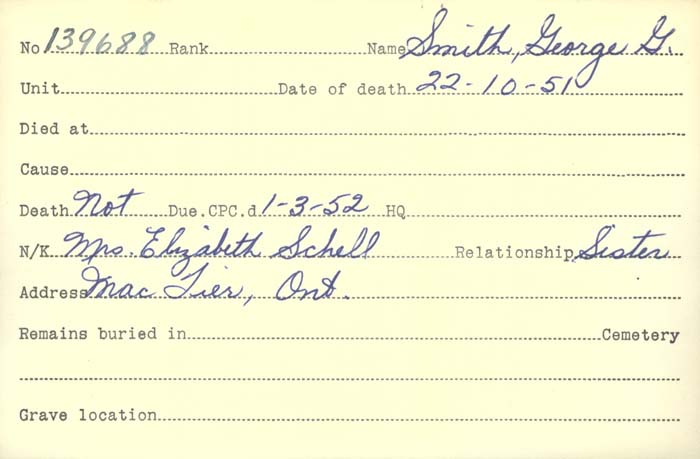 No 139688 Rank Name Smith, George G.
Unit Date of death 22-10-51
Died at
Cause
Death Not Due.CPC.d 1-3-52 HQ
N/K Mrs. Elizabeth Schell Relationship Sister
Address Mac Tier, Ont.
Remains buried in Cemetery
Grave location